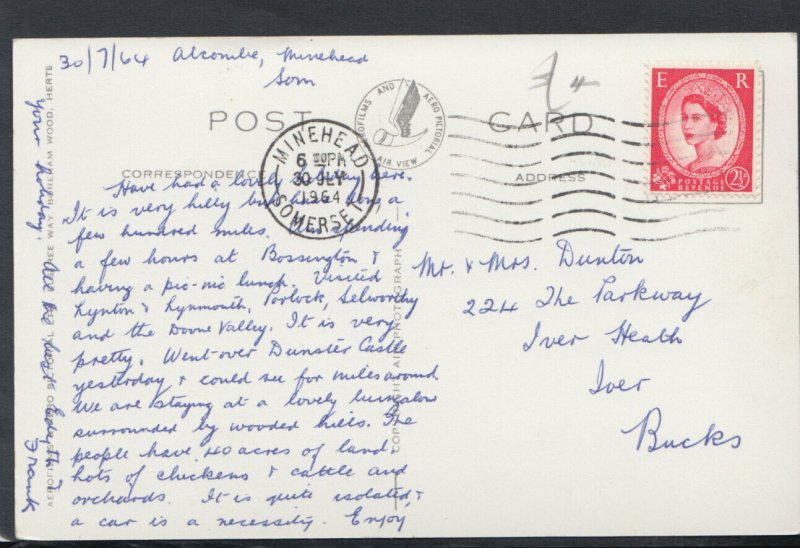 30/7/64 Alcombe, Minehead
Som
POST CARD
AEROFILMS AND AERO PICTORIAL
AIR VIEW
E R
POSTAGE
REVENUE
2½D
MINEHEAD
6 30PM
30 JLY
1964
SOMERSET
CORRESPONDENCE
ADDRESS
Have had a lovely here.
It is very hilly but a
few hundred miles. spending
a few hours at Bossington &
having a pic-nic lunch. Visited
Lynton & Lynmouth, Porlock, Selworthy
and the Doone Valley. It is very
pretty. Went over Dunster Castle
yesterday & could see for miles around
We are staying at a lovely bungalow
surrounded by wooded hills. The
people have 40 acres of land,
lots of chickens & cattle and
orchards. It is quite isolated &
a car is a necessity. Enjoy
your holiday. All the best
Frank
Mr. & Mrs. Dunton
224 The Parkway
Iver Heath
Iver
Bucks
COPYRIGHT AIR PHOTOGRAPH
AEROFILMS AND AERO PICTORIAL WAY, BOREHAM WOOD, HERTS